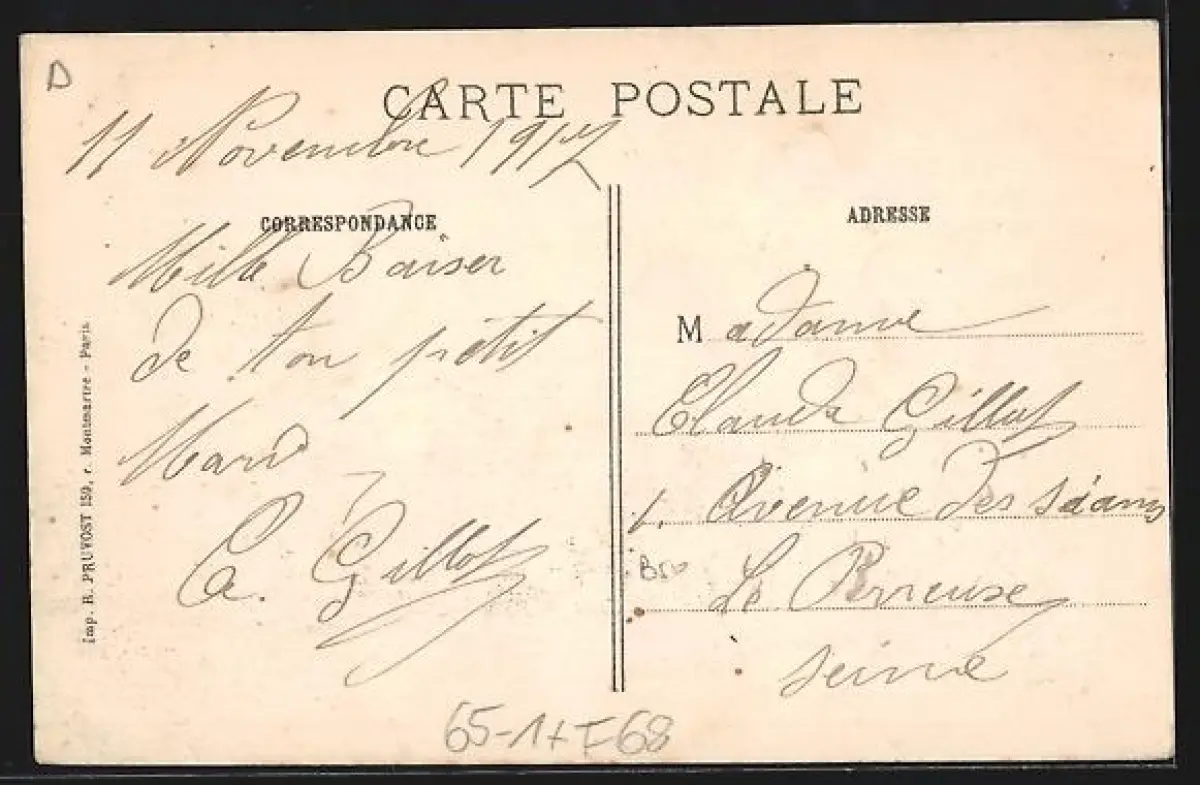 D
CARTE POSTALE
11 Novembre 1917
CORRESPONDANCE
Mille Baiser
de ton petit
Mari
C. Gillot
Imp. R. PRUVOST 159, r. Montmartre - Paris
ADRESSE
Madame
Claude Gillot
1. Avenue des
Le Perreuse
Seine
65-1+F-68